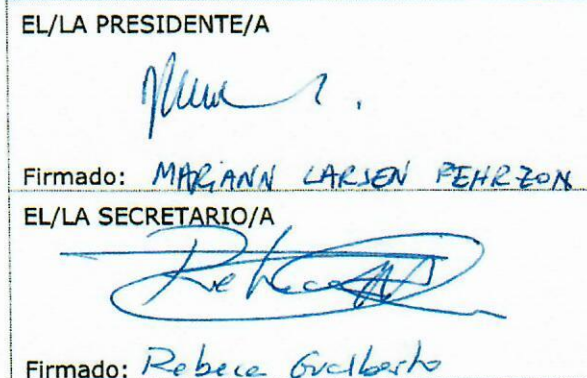 EL/LA PRESIDENTE/A
Firmado: MARIANN LARSEN PEHRZON
EL/LA SECRETARIO/A
Rebeca
Firmado: Rebeca Gualberto